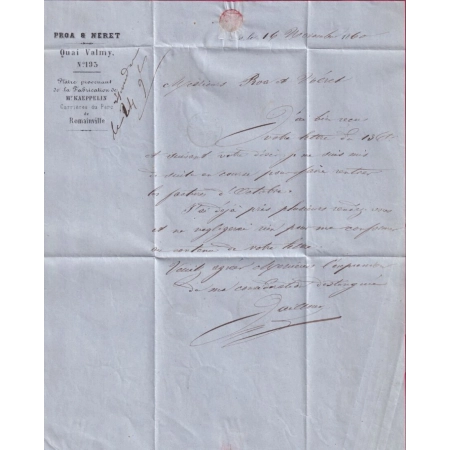 PROA & NERET
Quai Valmy,
N° 135
Plâtre provenant
de la Fabrication de
Mr KAEPPELIN
Carrières du Parc
de
Romainville
le 16 Novembre 1860
Messieurs Proa & Néret
J'ai bien reçu
votre lettre du 13
et suivant votre désir je me suis mis
de suite en course pour faire
la facture
J'ai déjà pris plusieurs rendez vous
et ne négligerai rien pour me conformer
au contenu de votre lettre
Veuillez agréer Messieurs l'expression
de ma considération distinguée